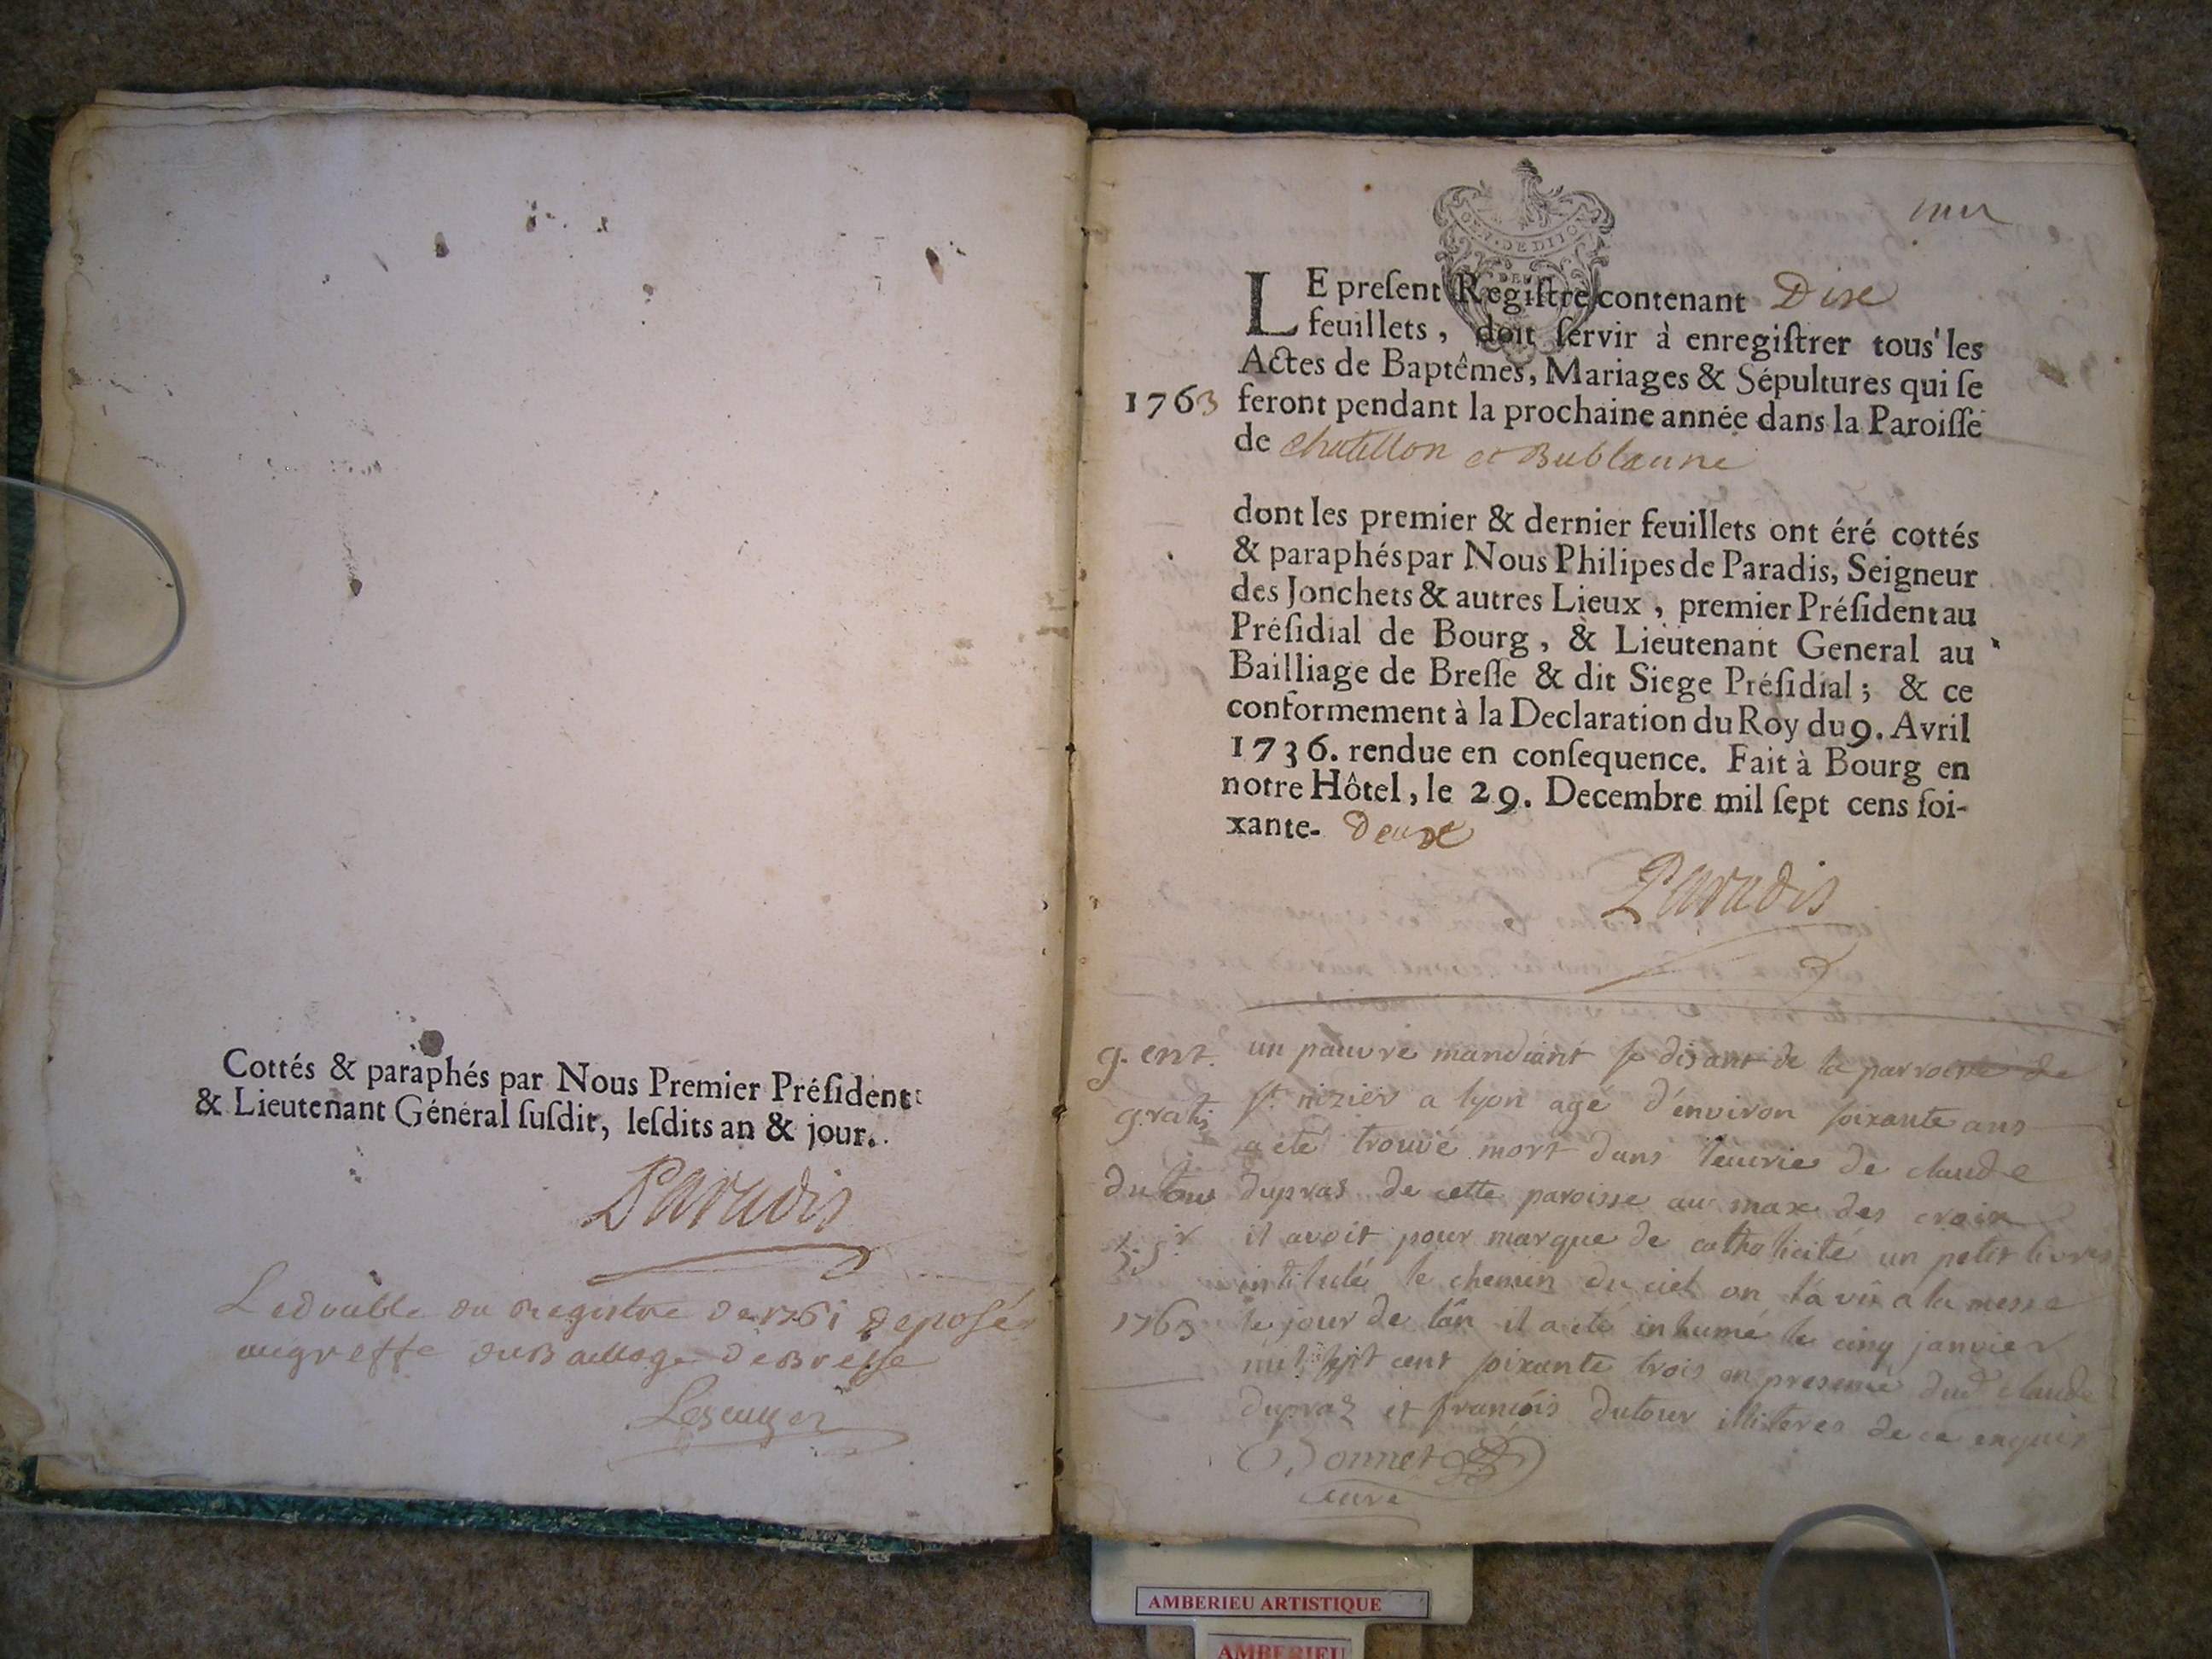 Cottés & paraphés par Nous Premier Préſident
& Lieutenant Général ſuſdit, leſdits an & jour.
Paradis
Le double du Registre de 1761 deposé
au greffe du Bailliage de Bresse
Lescuyer
GEN. DE DIJON
un
LE preſent Regiſtre contenant Dixe
feuillets, doit ſervir à enregiſtrer tous les
Actes de Baptêmes, Mariages & Sépultures qui ſe
1763 feront pendant la prochaine année dans la Paroiſſe
de chatillon et Bublanne
dont les premier & dernier feuillets ont éré cottés
& paraphés par Nous Philipes de Paradis, Seigneur
des Jonchets & autres Lieux, premier Préſident au
Préſidial de Bourg, & Lieutenant General au
Bailliage de Breſſe & dit Siege Préſidial; & ce
conformement à la Declaration du Roy du 9. Avril
1736. rendue en conſequence. Fait à Bourg en
notre Hôtel, le 29. Decembre mil ſept cens ſoi-
xante- Deuxe
Paradis
g. ent. un pauvre mandiant se disant de la parroisse de
gratis st nizier a lyon agé d'environ soixante ans
a eté trouvé mort dans l'ecurie de claude
dupras de cette paroisse au max des croix
il avoit pour marque de catholicité un petit livres
intitulé le chemin du ciel on l'a vû a la messe
1763 le jour de l'an il a eté inhumé le cinq janvier
mil sept cent soixante trois en presence dud claude
dupraz et francois dutour illiteres de ce enquis
Bonnet
curé
AMBERIEU ARTISTIQUE
AMBERIEU